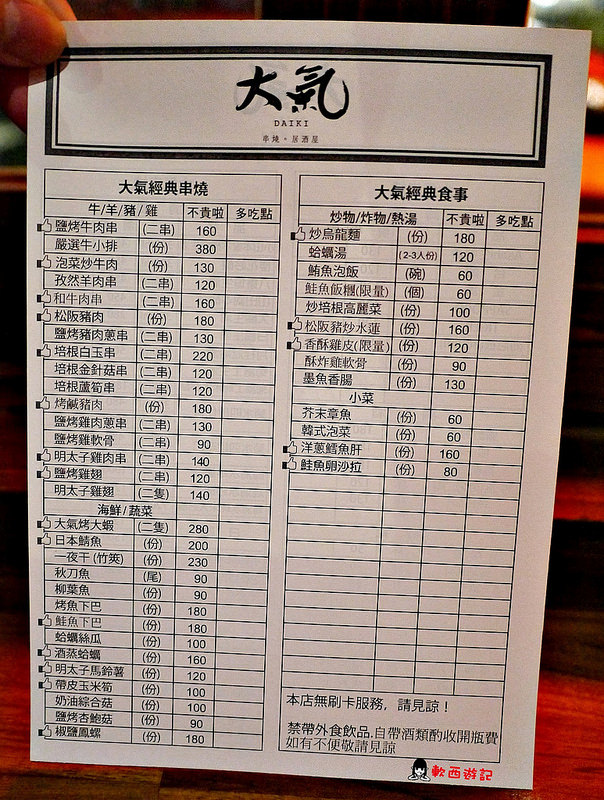 大氣
DAIKI
串燒・居酒屋
大氣經典串燒
牛/羊/豬/雞 不貴啦 多吃點
鹽烤牛肉串 (二串) 160
嚴選牛小排 (份) 380
泡菜炒牛肉 (份) 130
孜然羊肉串 (二串) 120
和牛肉串 (二串) 160
松阪豬肉 (份) 180
鹽烤豬肉蔥串 (二串) 130
培根白玉串 (二串) 220
培根金針菇串 (二串) 120
培根蘆筍串 (二串) 120
烤鹹豬肉 (份) 180
鹽烤雞肉蔥串 (二串) 130
鹽烤雞軟骨 (二串) 90
明太子雞肉串 (二串) 140
鹽烤雞翅 (二串) 120
明太子雞翅 (二隻) 140
海鮮/蔬菜
大氣烤大蝦 (二隻) 280
日本鯖魚 (份) 200
一夜干(竹筴) (份) 230
秋刀魚 (尾) 90
柳葉魚 (份) 90
烤魚下巴 (份) 180
鮭魚下巴 (份) 180
蛤蠣絲瓜 (份) 100
酒蒸蛤蠣 (份) 160
明太子馬鈴薯 (份) 120
帶皮玉米筍 (份) 100
奶油綜合菇 (份) 100
鹽烤杏鮑菇 (份) 90
椒鹽鳳螺 (份) 180
大氣經典食事
炒物/炸物/熱湯 不貴啦 多吃點
炒烏龍麵 (份) 180
蛤蠣湯 (2-3人份) 120
鮪魚泡飯 (碗) 60
鮭魚飯糰(限量) (個) 60
炒培根高麗菜 (份) 100
松阪豬炒水蓮 (份) 160
香酥雞皮(限量) (份) 120
酥炸雞軟骨 (份) 90
墨魚香腸 (份) 130
小菜
芥末章魚 (份) 60
韓式泡菜 (份) 60
洋蔥鱈魚肝 (份) 160
鮭魚卵沙拉 (份) 80
本店無刷卡服務，請見諒！
禁帶外食飲品.自帶酒類酌收開瓶費
如有不便敬請見諒
軟西遊記